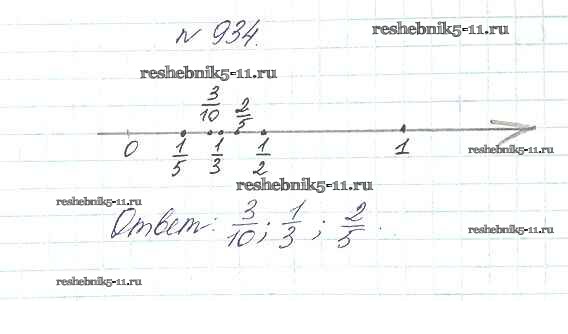 № 934.
reshebnik5-11.ru
reshebnik5-11.ru
3/10 2/5
0 1/5 1/3 1/2 1
reshebnik5-11.ru
reshebnik5-11.ru
reshebnik5-11.ru
Ответ: 3/10; 1/3; 2/5.
reshebnik5-11.ru
reshebnik5-11.ru